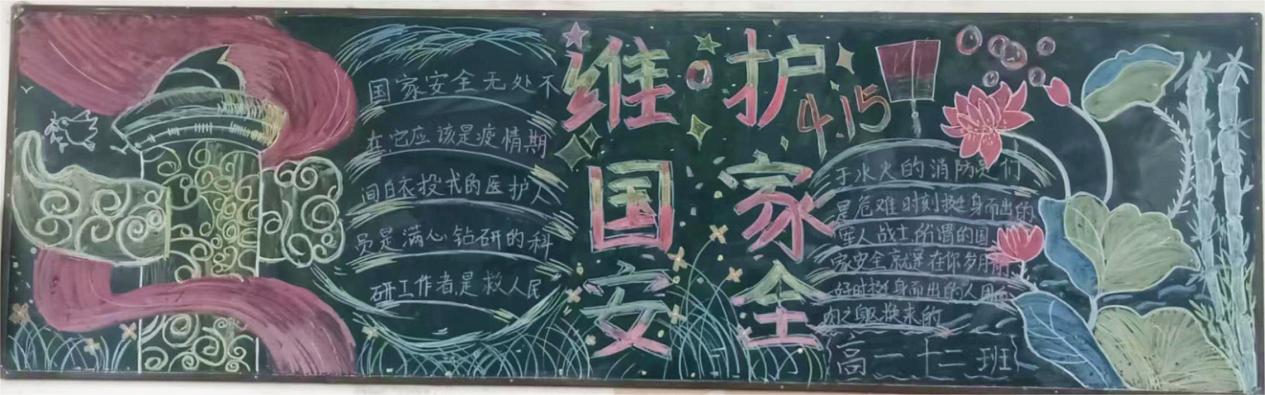 维护
4.15
国家
安全
国家安全无处不
在它应该是疫情期
间白衣披戎的医护人
员是满心钻研的科
研工作者是救人民
于水火的消防员们
是危难时刻挺身而出的
军人战士所谓的国
家安全就是在你岁月静
好时挺身而出的人用血
肉之躯换来的
高一十二班